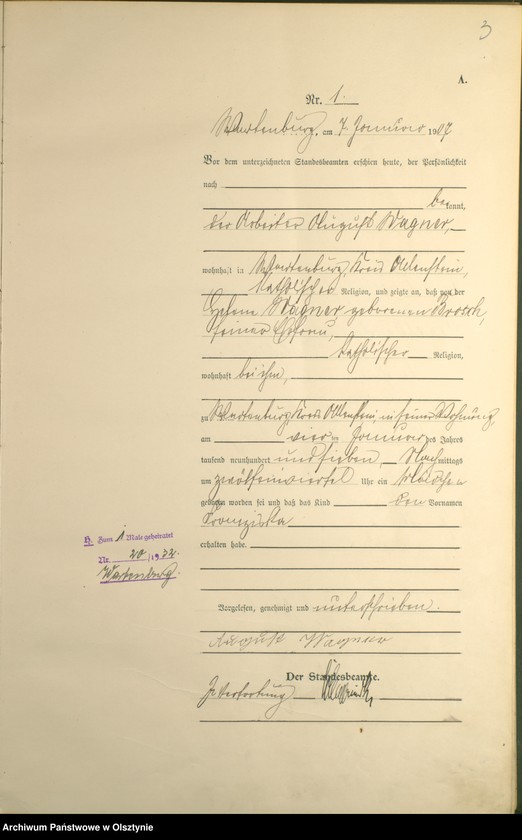 3
A.
Nr. 1.
Wartenburg, am 7. Januar 1907
Vor dem unterzeichneten Standesbeamten erschien heute, der Persönlichkeit
nach
bekannt,
der Arbeiter August Wagner,
wohnhaft in Wartenburg, Kreis Allenstein,
katholischer Religion, und zeigte an, daß von der
Wagner, geborenen Brosch,
seiner Ehefrau,
katholischer Religion,
wohnhaft bei ihm,
zu Wartenburg Kreis Allenstein, in seiner Wohnung
am vier ten Januar des Jahres
tausend neunhundert und sieben, Nachmittags
um zwölf einviertel Uhr ein Mädchen
geboren worden sei und daß das Kind den Vornamen
Franziska
erhalten habe.
H. Zum 1 Male geheiratet
Nr. 20/1932.
Wartenburg.
Vorgelesen, genehmigt und unterschrieben.
August Wagner
Der Standesbeamte.
In Vertretung
Archiwum Państwowe w Olsztynie